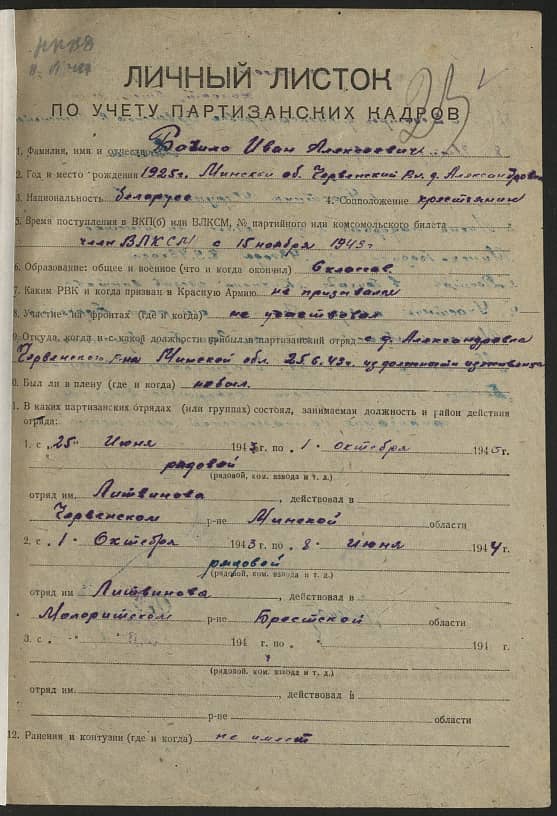 25
ЛИЧНЫЙ ЛИСТОК
ПО УЧЕТУ ПАРТИЗАНСКИХ КАДРОВ
1. Фамилия, имя и отчество Иван Алексеевич
2. Год и место рождения 1925 г. Минской об. Червенский д. Александровка
3. Национальность белорус 4. Соцположение крестьянин
5. Время поступления в ВКП(б) или ВЛКСМ, № партийного или комсомольского билета
член ВЛКСМ с 15 ноября 1943 г
6. Образование: общее и военное (что и когда окончил) 6 классов
7. Каким РВК и когда призван в Красную Армию не призывался
8. Участие на фронтах (где и когда) не участвовал
9. Откуда, когда и с какой должности прибыл в партизанский отряд с д. Александровка
Червенского р-на Минской обл. 25.6.43 г. из должности
0. Был ли в плену (где и когда) не был.
1. В каких партизанских отрядах (или группах) состоял, занимаемая должность и район действия
отряда:
1. с „25" Июня 1943 г. по „1" Октября 194 г.
рядовой
(рядовой, ком. взвода и т. д.)
отряд им. Литвинова, действовал в
Червенском р-не Минской области
2. с „1" Октября 1943 г. по „8" Июня 1944 г.
рядовой
(рядовой, ком. взвода и т. д.)
отряд им. Литвинова, действовал в
Малоритском р-не Брестской области
3. с „ " 194 г. по „ " 194 г.
(рядовой, ком. взвода и т. д.)
отряд им. , действовал в
р-не области
12. Ранения и контузии (где и когда) не имеет